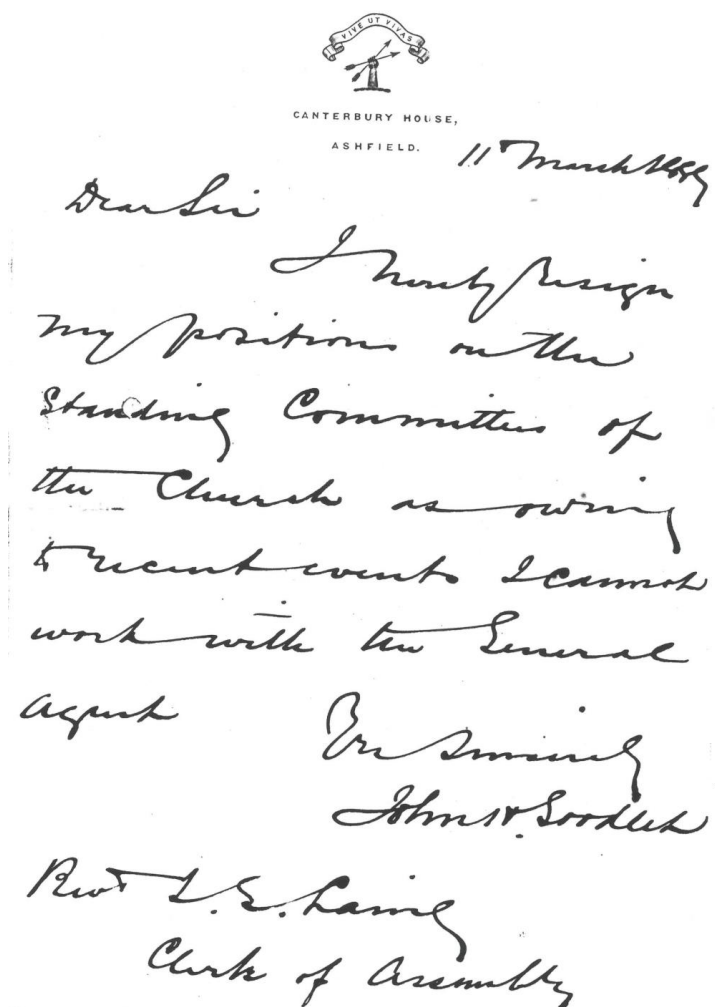 VIVE UT VIVAS
CANTERBURY HOUSE,
ASHFIELD.
11 March
Dear Sir
I hereby resign
my positions on the
Standing Committees of
the Church as owing
to recent events I cannot
work with the General
Agent
sincerely
John H. Goodlet
Revd
Clerk of Assembly